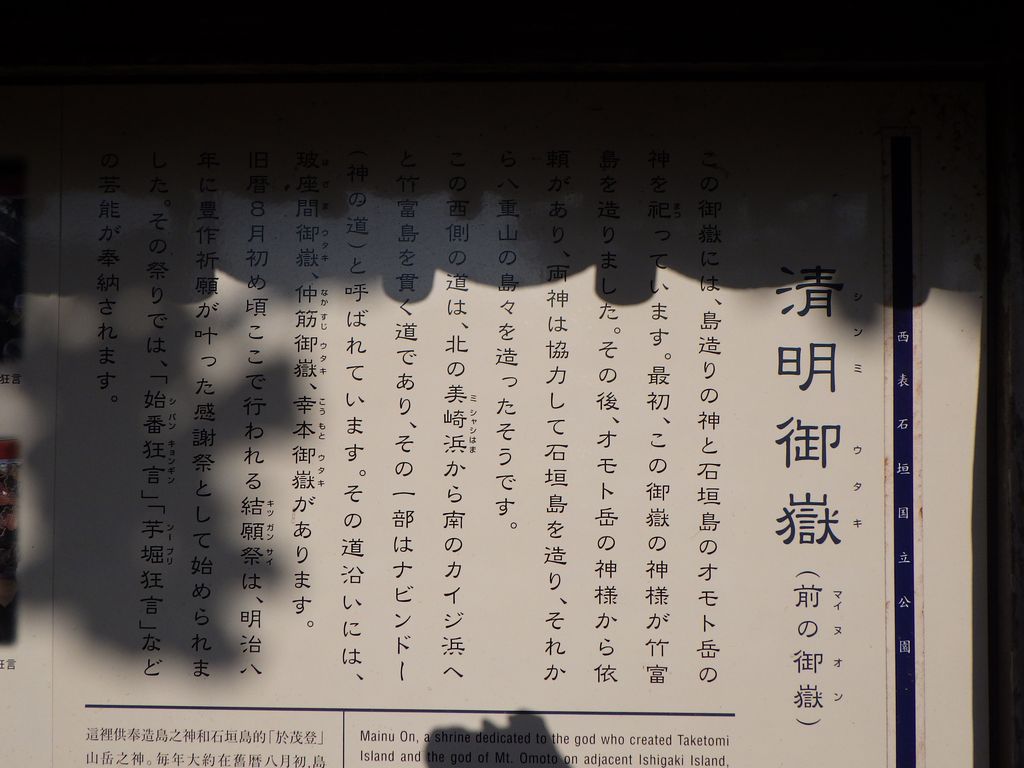 西表石垣国立公園
清明御嶽（前の御嶽）
シンミ ウタキ マイヌオン
この御嶽には、島造りの神と石垣島のオモト岳の
神を祀っています。最初、この御嶽の神様が竹富
まつ
島を造りました。その後、オモト岳の神様から依
頼があり、両神は協力して石垣島を造り、それか
ら八重山の島々を造ったそうです。
この西側の道は、北の美崎浜から南のカイジ浜へ
ミシャシはま
と竹富島を貫く道であり、その一部はナビンドー
（神の道）と呼ばれています。その道沿いには、
玻座間御嶽、仲筋御嶽、幸本御嶽があります。
はざまウタキ なかすじウタキ こうもとウタキ
旧暦８月初め頃ここで行われる結願祭は、明治八
キツガンサイ
年に豊作祈願が叶った感謝祭として始められま
した。その祭りでは、「始番狂言」「芋堀狂言」など
シバンキョンギン ンープリ
の芸能が奉納されます。
狂言
狂言
這裡供奉造島之神和石垣島的「於茂登」
山岳之神。每年大約在舊曆八月初，島
Mainu On, a shrine dedicated to the god who created Taketomi
Island and the god of Mt. Omoto on adjacent Ishigaki Island,